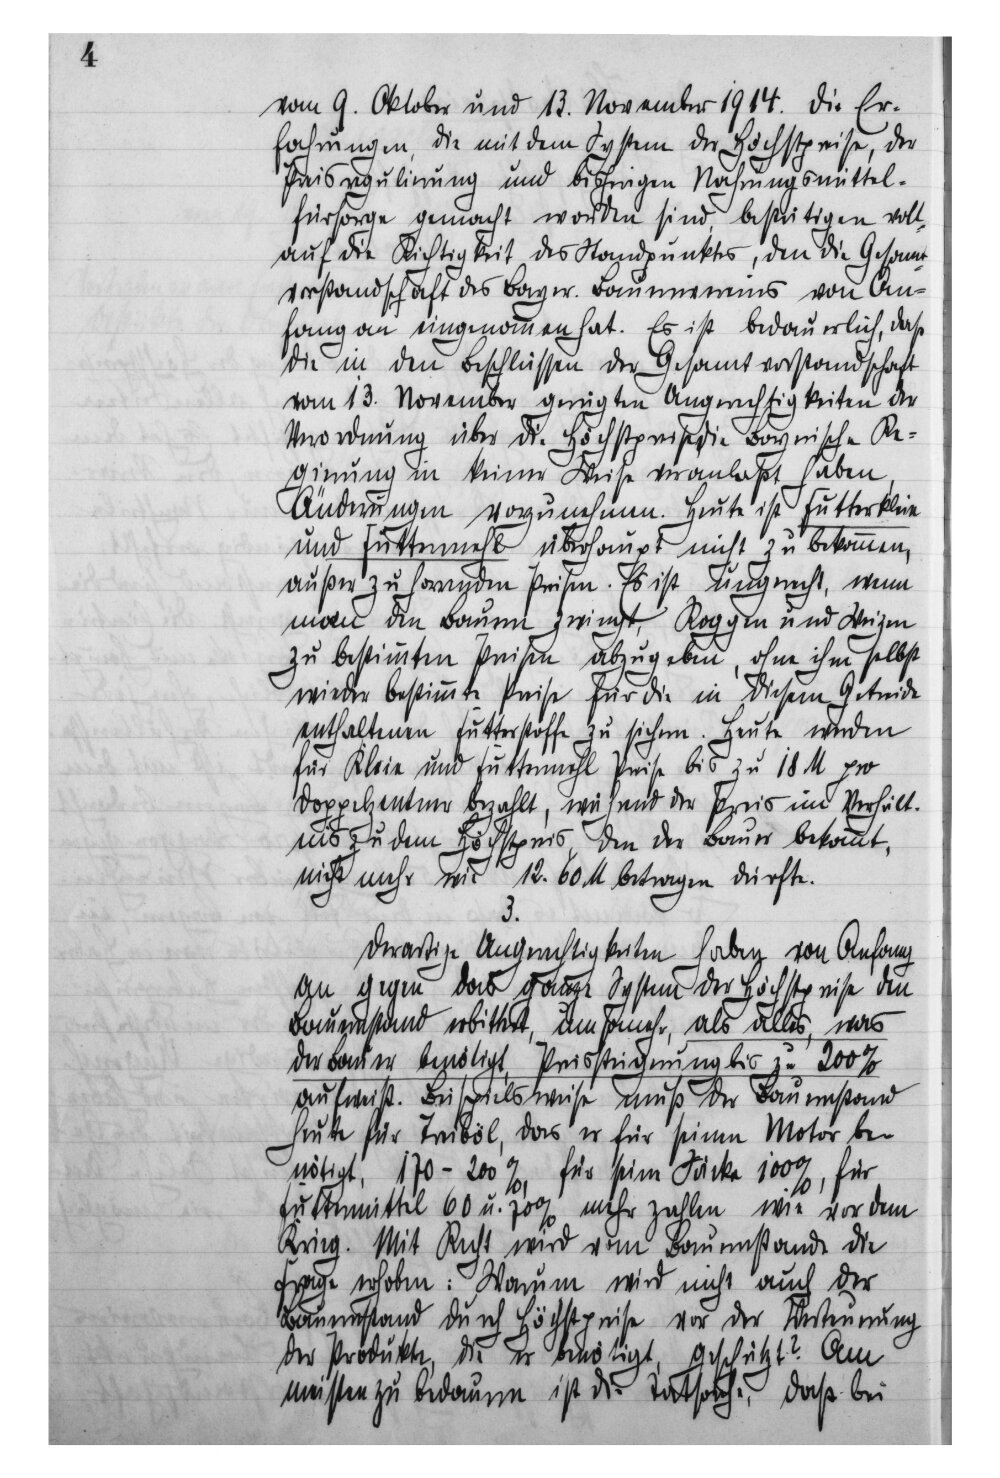 4
vom 9. Oktober und 13. November 1914. Die Er-
fahrungen, die mit dem System der Höchstpreise, der
Preisregulierung und bisherigen Nahrungsmittel-
fürsorge gemacht worden sind, bestätigen voll-
auf die Richtigkeit des Standpunktes, den die Gesamt-
vorstandschaft des Bayer. Bauernvereins von An-
fang an eingenommen hat. Es ist bedauerlich, dass
die in den Beschlüssen der Gesamtvorstandschaft
vom 13. November gerügten Ungerechtigkeiten der
Verordnung über die Höchstpreise die bayerische Re-
gierung in keiner Weise veranlaßt haben,
Änderungen vorzunehmen. Heute ist Futterkleie
und Futtermehl überhaupt nicht zu bekommen,
außer zu horrenden Preisen. Es ist ungerecht, wenn
man den Bauern zwingt, Roggen und Weizen
zu bestimmten Preisen abzugeben, ohne ihm selbst
wieder bestimmte Preise für die in diesem Getreide
enthaltenen Futterstoffe zu sichern. Heute werden
für Kleie und Futtermehl Preise bis zu 18 M pro
Doppelzentner bezahlt, während der Preis im Verhält-
nis zu dem Höchstpreis, den der Bauer bekommt,
nicht mehr wie 12.60 M betragen dürfte.
3.
Derartige Ungerechtigkeiten haben von Anfang
an gegen das ganze System der Höchstpreise den
Bauernstand erbittert, umsomehr, als alles, was
der Bauer benötigt, Preissteigerung bis zu 200%
aufweist. Beispielsweise muß der Bauernstand
heute für Treiböl, das er für seinen Motor be-
nötigt, 170 - 200%, für seine Säcke 100%, für
Futtermittel 60 u. 70% mehr zahlen wie vor dem
Krieg. Mit Recht wird vom Bauernstande die
Frage erhoben: Warum wird nicht auch der
Bauernstand durch Höchstpreise vor der Verteuerung
der Produkte, die er benötigt, geschützt? Am
meisten zu bedauern ist die Tatsache, daß bei